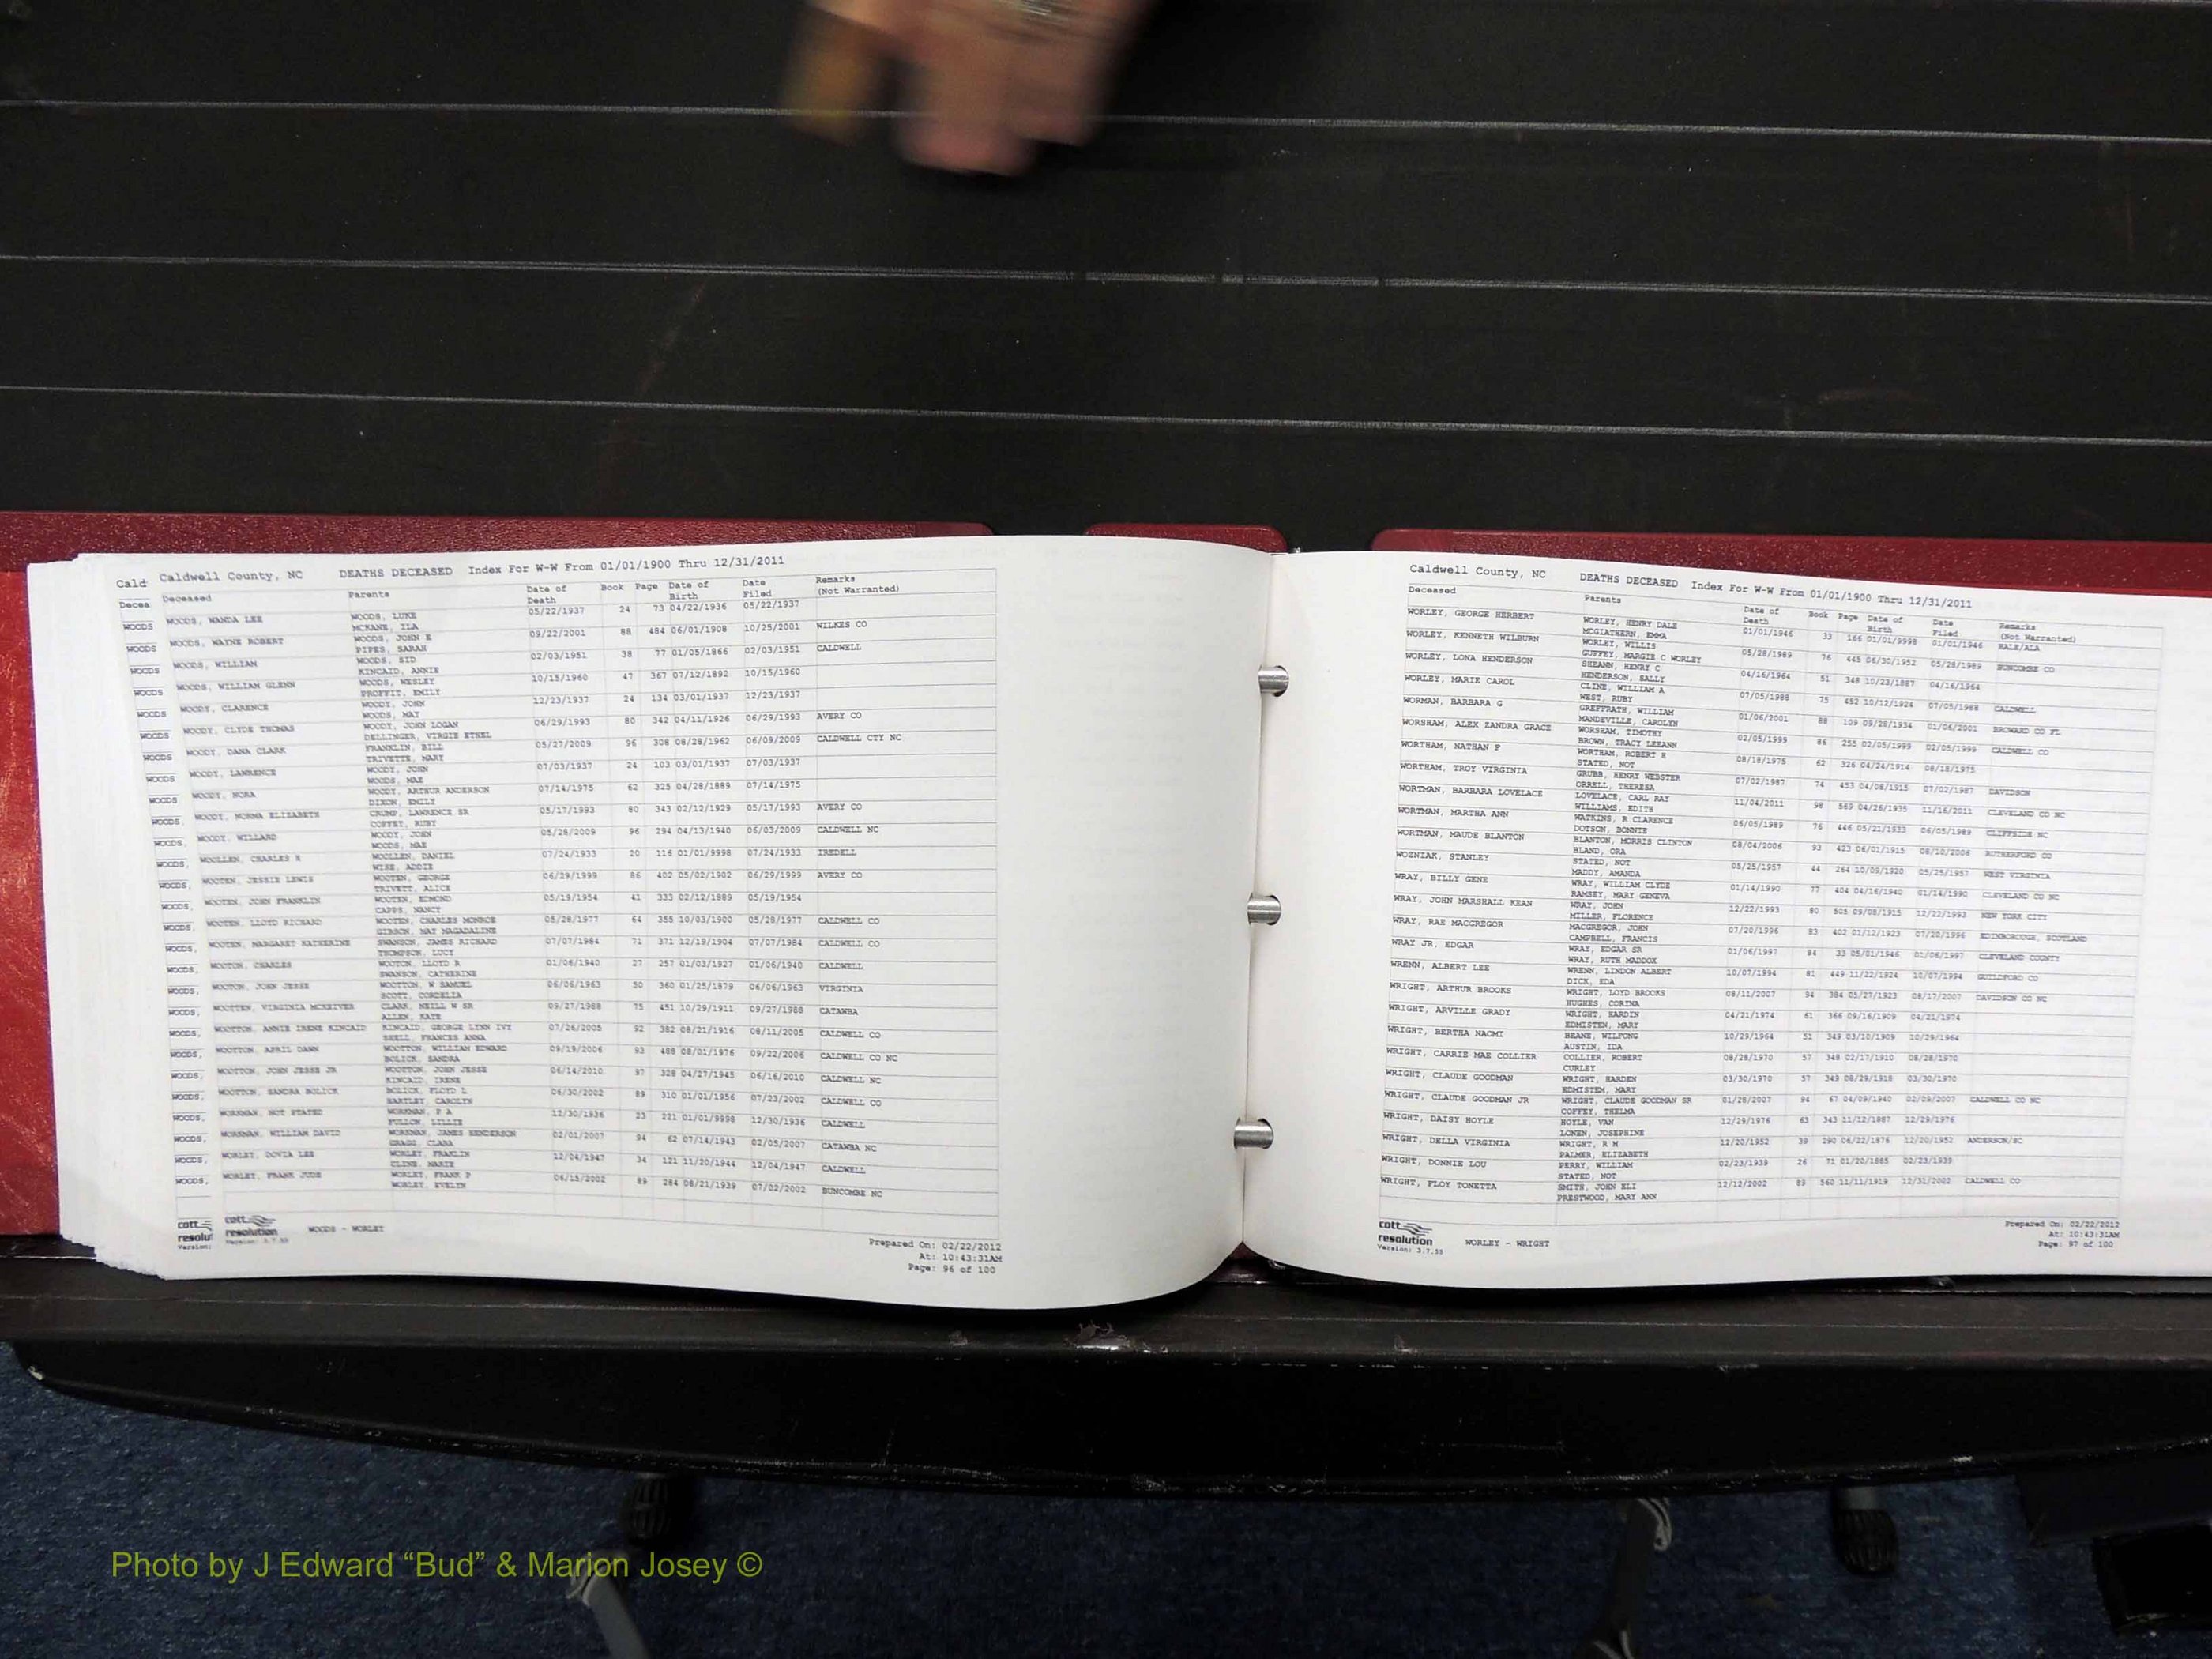 Cald
Decea
WOODS
Caldwell County, NC DEATHS DECEASED Index For W-W From 01/01/1900 Thru 12/31/2011
Deceased Parents Date of Death Book Page Date of Birth Date Filed Remarks (Not Warranted)
WOODS, WANDA LEE WOODS, LUKE 05/22/1937 24 73 04/22/1936 05/22/1937
MCKANE, ILA
WOODS, WAYNE ROBERT WOODS, JOHN E 09/22/2001 88 484 06/01/1908 10/25/2001 WILKES CO
PIPES, SARAH
WOODS, WILLIAM WOODS, SID 02/03/1951 38 77 01/05/1866 02/03/1951 CALDWELL
KINCAID, ANNIE
WOODS, WILLIAM GLENN WOODS, WESLEY 10/15/1960 47 367 07/12/1892 10/15/1960
PROFFIT, EMILY
WOODY, CLARENCE WOODY, JOHN 12/23/1937 24 134 03/01/1937 12/23/1937
WOODS, MAY
WOODY, CLYDE THOMAS WOODY, JOHN LOGAN 06/29/1993 80 342 04/11/1926 06/29/1993 AVERY CO
DELLINGER, VIRGIE ETHEL
WOODY, DANA CLARK FRANKLIN, BILL 05/27/2009 96 308 08/28/1962 06/09/2009 CALDWELL CTY NC
TRIVETTE, MARY
WOODY, LAWRENCE WOODY, JOHN 07/03/1937 24 103 03/01/1937 07/03/1937
WOODS, MAE
WOODY, NORA WOODY, ARTHUR ANDERSON 07/14/1975 62 325 04/28/1889 07/14/1975
DIXON, EMILY
WOODY, NORMA ELIZABETH CRUMP, LAWRENCE SR 05/17/1993 80 343 02/12/1929 05/17/1993 AVERY CO
COFFEY, RUBY
WOODY, WILLARD WOODY, JOHN 05/28/2009 96 294 04/13/1940 06/03/2009 CALDWELL NC
WOODS, MAE
WOOLLEN, CHARLES R WOOLLEN, DANIEL 07/24/1933 20 116 01/01/9998 07/24/1933 IREDELL
WISE, ADDIE
WOOTEN, JESSIE LEWIS WOOTEN, GEORGE 06/29/1999 86 402 05/02/1902 06/29/1999 AVERY CO
TRIVETT, ALICE
WOOTEN, JOHN FRANKLIN WOOTEN, EDMOND 05/19/1954 41 333 02/12/1889 05/19/1954
CAPPS, NANCY
WOOTEN, LLOYD RICHARD WOOTEN, CHARLES MONROE 05/28/1977 64 355 10/03/1900 05/28/1977 CALDWELL CO
GIBSON, MAY MAGADALINE
WOOTEN, MARGARET KATHERINE SWANSON, JAMES RICHARD 07/07/1984 71 371 12/19/1904 07/07/1984 CALDWELL CO
THOMPSON, LUCY
WOOTON, CHARLES WOOTON, LLOYD R 01/06/1940 27 257 01/03/1927 01/06/1940 CALDWELL
SWANSON, CATHERINE
WOOTON, JOHN JESSE WOOTTON, W SAMUEL 06/06/1963 50 360 01/25/1879 06/06/1963 VIRGINIA
SCOTT, CORDELIA
WOOTTEN, VIRGINIA MCKEIVER CLARK, NEILL W SR 09/27/1988 75 451 10/29/1911 09/27/1988 CATAWBA
ALLEN, KATE
WOOTTON, ANNIE IRENE KINCAID KINCAID, GEORGE LYNN IVY 07/26/2005 92 382 08/21/1916 08/11/2005 CALDWELL CO
SHELL, FRANCES ANNA
WOOTTON, APRIL DAWN WOOTTON, WILLIAM EDWARD 09/19/2006 93 488 08/01/1976 09/22/2006 CALDWELL CO NC
BOLICK, SANDRA
WOOTTON, JOHN JESSE JR WOOTTON, JOHN JESSE 06/14/2010 97 328 04/27/1945 06/16/2010 CALDWELL NC
KINCAID, IRENE
WOOTTON, SANDRA BOLICK BOLICK, FLOYD L 06/30/2002 89 310 01/01/1956 07/23/2002 CALDWELL CO
HARTLEY, CAROLYN
WORKMAN, NOT STATED WORKMAN, P A 12/30/1936 23 221 01/01/9998 12/30/1936 CALDWELL
FULLON, LILLIE
WORKMAN, WILLIAM DAVID WORKMAN, JAMES HENDERSON 02/01/2007 94 62 07/14/1943 02/05/2007 CATAWBA NC
GRAGG, CLARA
WORLEY, DOVIA LEE WORLEY, FRAKLIN 12/04/1947 34 121 11/20/1944 12/04/1947 CALDWELL
CLINE, MARIE
WORLEY, FRANK JUDE WORLEY, FRANK P 06/15/2002 89 284 08/21/1939 07/02/2002 BUNCOMBE NC
WORLEY, EVELYN
cott
resolution
Version: 3.7.55
WOODS - WORLEY
Prepared On: 02/22/2012
At: 10:43:31AM
Page: 96 of 100
Caldwell County, NC DEATHS DECEASED Index For W-W From 01/01/1900 Thru 12/31/2011
Deceased Parents Date of Death Book Page Date of Birth Date Filed Remarks (Not Warranted)
WORLEY, GEORGE HERBERT WORLEY, HENRY DALE 01/01/1946 33 166 01/01/9998 01/01/1946 HALE/ALA
MCGIATHERN, EMMA
WORLEY, KENNETH WILBURN WORLEY, WILLIS 05/28/1989 76 445 06/30/1952 05/28/1989 BUNCOMBE CO
GUFFEY, MARGIE C WORLEY
WORLEY, LONA HENDERSON SHEANN, HENRY C 04/16/1964 51 348 10/23/1887 04/16/1964
HENDERSON, SALLY
WORLEY, MARIE CAROL CLINE, WILLIAM A 07/05/1988 75 452 10/12/1924 07/05/1988 CALDWELL
WEST, RUBY
WORMAN, BARBARA G GREFFRATH, WILLIAM 01/06/2001 88 109 09/28/1934 01/06/2001 BROWARD CO FL
MANDEVILLE, CAROLYN
WORSHAM, ALEX ZANDRA GRACE WORSHAM, TIMOTHY 02/05/1999 86 255 02/05/1999 02/05/1999 CALDWELL CO
BROWN, TRACY LEEANN
WORTHAM, NATHAN F WORTHAM, ROBERT H 08/18/1975 62 326 04/24/1914 08/18/1975
STATED, NOT
WORTHAM, TROY VIRGINIA GRUBB, HENRY WEBSTER 07/02/1987 74 453 04/08/1915 07/02/1987 DAVIDSON
ORRELL, THERESA
WORTMAN, BARBARA LOVELACE LOVELACE, CARL RAY 11/04/2011 98 569 04/26/1935 11/16/2011 CLEVELAND CO NC
WILLIAMS, EDITH
WORTMAN, MARTHA ANN WATKINS, R CLARENCE 06/05/1989 76 446 05/21/1933 06/05/1989 CLIFFSIDE NC
DOTSON, BONNIE
WORTMAN, MAUDE BLANTON BLANTON, MORRIS CLINTON 08/04/2006 93 423 06/01/1915 08/10/2006 RUTHERFORD CO
BLAND, ORA
WOZNIAK, STANLEY STATED, NOT 05/25/1957 44 264 10/09/1920 05/25/1957 WEST VIRGINIA
MADDY, AMANDA
WRAY, BILLY GENE WRAY, WILLIAM CLYDE 01/14/1990 77 404 04/16/1940 01/14/1990 CLEVELAND CO NC
RAMSEY, MARY GENEVA
WRAY, JOHN MARSHALL KEAN WRAY, JOHN 12/22/1993 80 505 09/08/1915 12/22/1993 NEW YORK CITY
MILLER, FLORENCE
WRAY, RAE MACGREGOR MACGREGOR, JOHN 07/20/1996 83 402 01/12/1923 07/20/1996 EDINBOROUGE, SCOTLAND
CAMPBELL, FRANCIS
WRAY JR, EDGAR WRAY, EDGAR SR 01/06/1997 84 33 05/01/1946 01/06/1997 CLEVELAND COUNTY
WRAY, RUTH MADDOX
WRENN, ALBERT LEE WRENN, LINDON ALBERT 10/07/1994 81 449 11/22/1924 10/07/1994 GUILDFORD CO
DICK, EDA
WRIGHT, ARTHUR BROOKS WRIGHT, LOYD BROOKS 08/11/2007 94 384 05/27/1923 08/17/2007 DAVIDSON CO NC
HUGHES, CORINA
WRIGHT, ARVILLE GRADY WRIGHT, HARDIN 04/21/1974 61 366 09/16/1909 04/21/1974
EDMISTEN, MARY
WRIGHT, BERTHA NAOMI BEANE, WILFONG 10/29/1964 51 349 03/10/1909 10/29/1964
AUSTIN, IDA
WRIGHT, CARRIE MAE COLLIER COLLIER, ROBERT 08/28/1970 57 348 02/17/1910 08/28/1970
CURLEY
WRIGHT, CLAUDE GOODMAN WRIGHT, HARDEN 03/30/1970 57 349 08/29/1918 03/30/1970
EDMISTEM, MARY
WRIGHT, CLAUDE GOODMAN JR WRIGHT, CLAUDE GOODMAN SR 01/28/2007 94 67 04/09/1940 02/09/2007 CALDWELL CO NC
COFFEY, THELMA
WRIGHT, DAISY HOYLE HOYLE, VAN 12/29/1976 63 343 11/12/1887 12/29/1976
LONEN, JOSEPHINE
WRIGHT, DELLA VIRGINIA WRIGHT, R M 12/20/1952 39 290 06/22/1876 12/20/1952 ANDERSON/SC
PALMER, ELIZABETH
WRIGHT, DONNIE LOU PERRY, WILLIAM 02/23/1939 26 71 01/20/1865 02/23/1939
STATED, NOT
WRIGHT, FLOY TONETTA SMITH, JOHN ELI 12/12/2002 89 560 11/11/1919 12/31/2002 CALDWELL CO
PRESTWOOD, MARY ANN
cott
resolution
Version: 3.7.55
WORLEY - WRIGHT
Prepared On: 02/22/2012
At: 10:43:31AM
Page: 97 of 100
Photo by J Edward “Bud” & Marion Josey ©